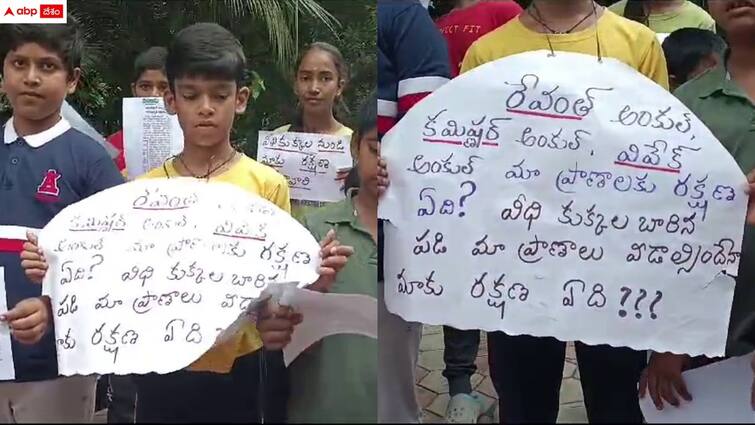 abp దేశం
రేవంత్ అంకుల్,
కమిష్నర్ అంకుల్, వివేక్
అంకుల్ మా ప్రాణాలకు రక్షణ
ఏది? వీధి కుక్కల బారిన
పడి మా ప్రాణాలు విడాల్సిందేనా
మాకు రక్షణ ఏది ???
వీధి కుక్కల నుండి
మాకు రక్షణ
రేవంత్
కమిష్నర్ అంకుల్, వివేక్
అంకుల్ మా ప్రాణాలకు రక్షణ
ఏది? వీధి కుక్కల బారిన
పడి మా ప్రాణాలు
మాకు రక్షణ ఏది ?
A